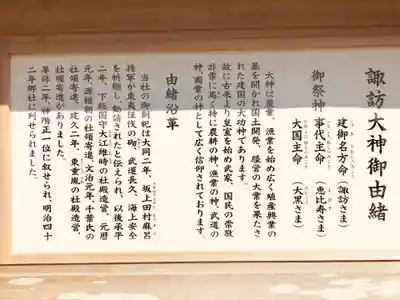 諏訪大神御由緒
御祭神
建御名方命（諏訪さま）
事代主命（恵比寿さま）
大国主命（大黒さま）
大神は農業、漁業を始め広く殖産興業の
基を開かれ国土開発、経営の大業を果たさ
れた建国の大功神であります。
故に古来より皇室を始め武家、国民の崇敬
非常に高く特に農耕の神、漁業の神、武道の
神、商業の神として広く信仰されております。
由緒沿革
当社の御創祀は大同二年、坂上田村麻呂
将軍が東夷征伐の砌、武運長久、海上安全
を祈願し、勧請されたと伝えられ、以後承平
二年、下総国守大江維時の社殿造営、元暦
元年、源頼朝の社領寄進、文治元年、千葉氏の
社領寄進、建久二年、東重胤の社殿造営、
社領寄進がありました。
享保二年、神階正一位に叙せられ、明治四十
二年郷社に列せられました。